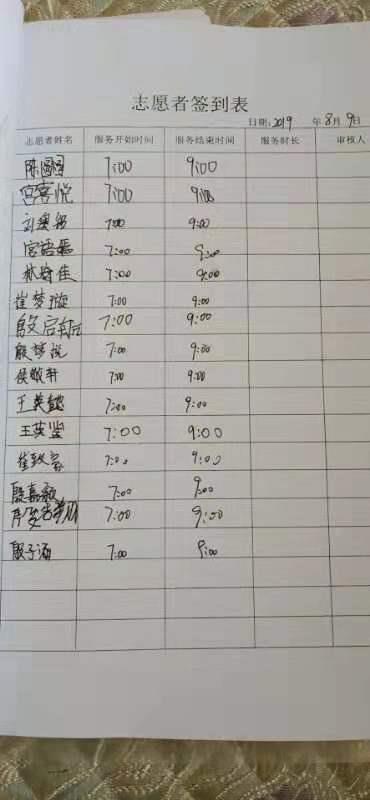 志愿者签到表
日期: 2019 年 8 月 9 日
志愿者姓名 服务开始时间 服务结束时间 服务时长 审核人
陈圆圆 7:00 9:00
宫喜悦 7:00 9:00
刘 7:00 9:00
宫语 7:00 9:00
林 佳 7:00 9:00
崔梦璇 7:00 9:00
殷启航 7:00 9:00
殷梦悦 7:00 9:00
侯敬轩 7:00 9:00
王英懿 7:00 9:00
王英鉴 7:00 9:00
崔致宾 7:00 9:00
殷嘉 7:00 9:00
7:00 9:00
殷子涵 7:00 9:00